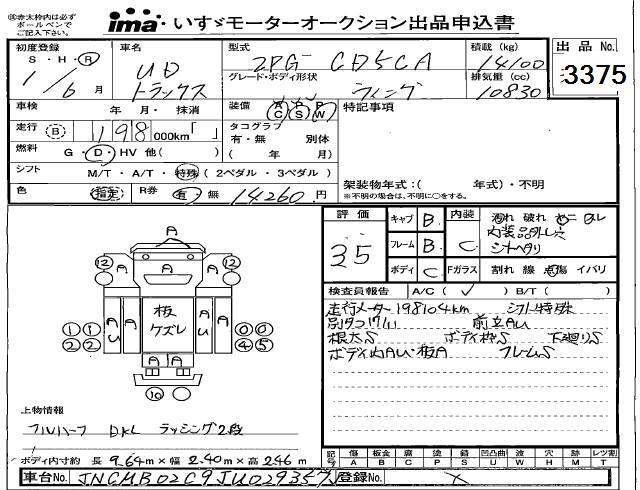 ※赤太枠内は必ずボールペンでご記入下さい。
ima いすゞモーターオークション出品申込書
初度登録 車名 型式 積載(kg) 出品No.
S・H・R UD トラックス 2PG- CD5CA 14100
1/6 月 グレード・ボディ形状 ウィング 排気量(cc) 10830 3375
車検 年 月・抹消 装備 A/C P/S P/W 特記事項
走行 B 198 000km「 」 タコグラフ 有・無 別体
燃料 G・D・HV 他( ) ( 年 月)
シフト M/T・A/T・特殊(2ペダル・3ペダル) 架装物年式:( 年式)・不明
※不明の場合は、不明に○をする。
色 指定 R券 有・無 14260 円
評価 3.5
キャブ B 内装 C 濁れ 破れ ヤニ 内装品外し穴 シートヘタリ
フレーム B
ボディ C Fガラス 割れ 線 点傷 イバリ
検査員報告 A/C( ✓ ) B/T( )
走行メーター198104km シフト特殊
前立AU
根太S ボデイ枠S 下廻りS
ボディ内AU・板A フレームS
A
12 A A A 12
A A U 板 ケズレ A U A
1 1 0 0
2 2 4 5
A A
10
上物情報
フルハーフ DKL ラッシング2段
ボディ内寸約 長 9.64m×幅 2.40m×高 2.46m
記号 傷 A 板金 B 腐 C 塗 P 錆 S 凹凸曲 U 波 W 穴 H 跡 M レツ割 T
車台No. JNCMB02C9JU029357 登録No.